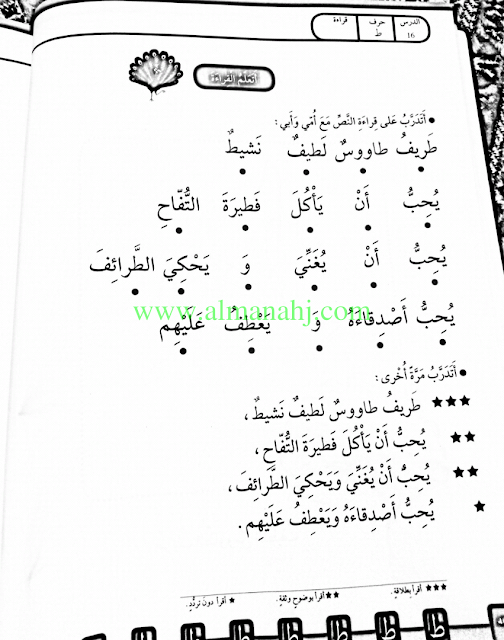 الدرس 16 حرف ط قراءة
أَتَعَلَّمُ القِراءَةَ
• أَتَدَرَّبُ عَلى قِراءَةِ النَّصِّ مَعَ أُمّي وَأَبي :
طَريفُ طاووسٌ لَطيفٌ نَشيطٌ
يُحِبُّ أَنْ يَأْكُلَ فَطيرَةَ التُّفّاحِ
يُحِبُّ أَنْ يُغَنِّيَ وَ يَحْكِيَ الطَّرائِفَ
www.almanahj.com
يُحِبُّ أَصْدِقاءَهُ وَ يَعْطِفُ عَلَيْهِم
• أَتَدَرَّبُ مَرَّةً أُخْرى :
★★★ طَريفُ طاووسٌ لَطيفٌ نَشيطٌ ،
★★ يُحِبُّ أَنْ يَأْكُلَ فَطيرَةَ التُّفّاحِ ،
★★ يُحِبُّ أَنْ يُغَنِّيَ وَيَحْكِيَ الطَّرائِفَ ،
★ يُحِبُّ أَصْدِقاءَهُ وَيَعْطِفُ عَلَيْهِم .
★★★ أقرأ بطلاقةٍ . ★★ أقرأ بوضوحٍ وثقةٍ . ★ أقرأ دونَ تردّدٍ .
ط ط ط ط ط ط